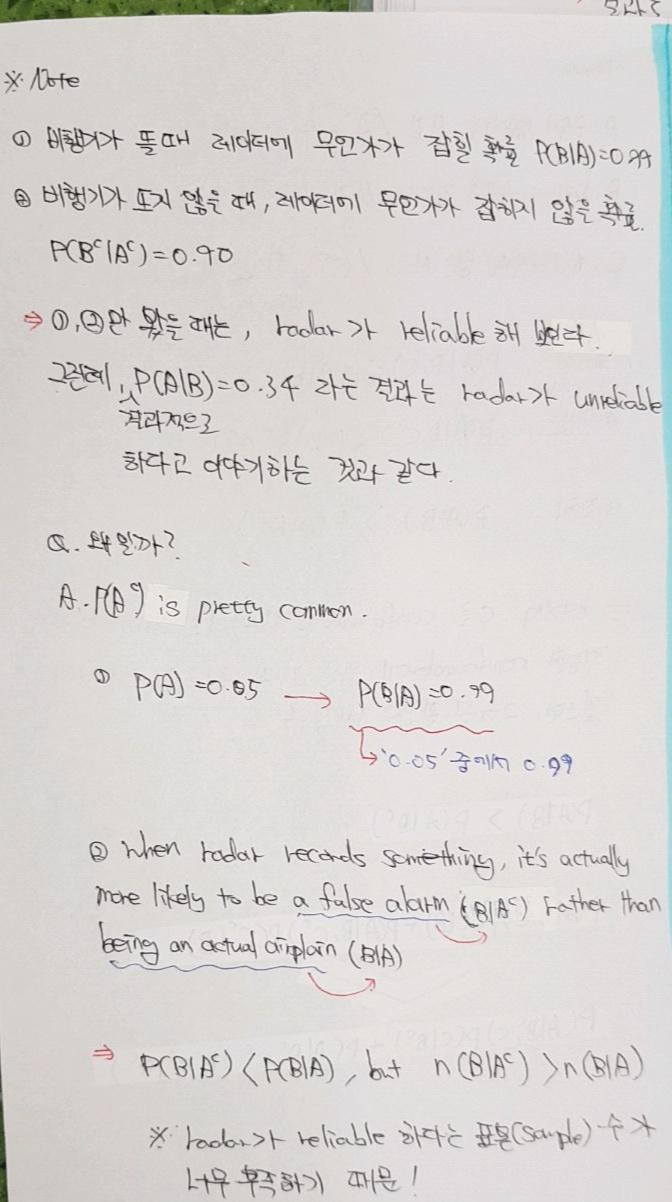 ※ Note
① 비행기가 뜰때 레이더에 무언가가 잡힐 확률 P(B|A)=0.99
② 비행기가 뜨지 않을 때, 레이더에 무언가가 잡히지 않은 확률.
P(Bᶜ|Aᶜ)=0.90
⇒ ①,②만 봤을 때는, radar가 reliable 해 보인다.
그런데, P(A|B)=0.34 라는 결과는 radar가 unreliable
결과적으로
하다고 이야기하는 것과 같다.
Q. 왜일까?
A. P(Aᶜ) is pretty common.
① P(A)=0.05 → P(B|A)=0.99
↳ '0.05' 중에서 0.99
② when radar records something, it's actually
more likely to be a false alarm (B|Aᶜ) rather than
being an actual airplain (B|A)
⇒ P(B|Aᶜ) < P(B|A), but n(B|Aᶜ) > n(B|A)
※ radar가 reliable 하다는 표본(sample) 수가
너무 부족하기 때문!